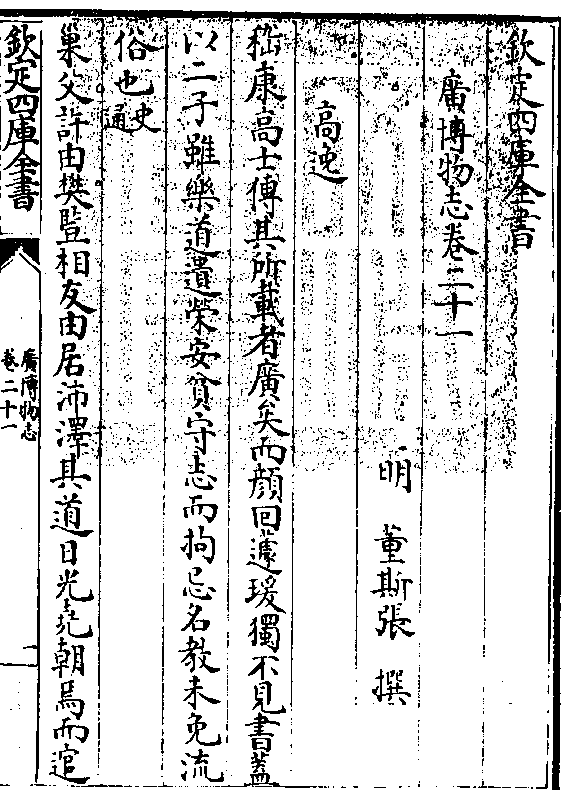 欽定四庫全書
廣博物志卷二十一
明 董斯張 撰
高逸
嵇康高士傳其所載者廣矣而顔回蘧瑗獨不見書蓋
以二子雖樂道遺榮安貧守志而拘忌名教未免流
俗也史通
巢父許由樊䜿相友由居沛澤其道日光堯朝焉而逭
欽定四庫全書
廣博物志
卷二十一
一